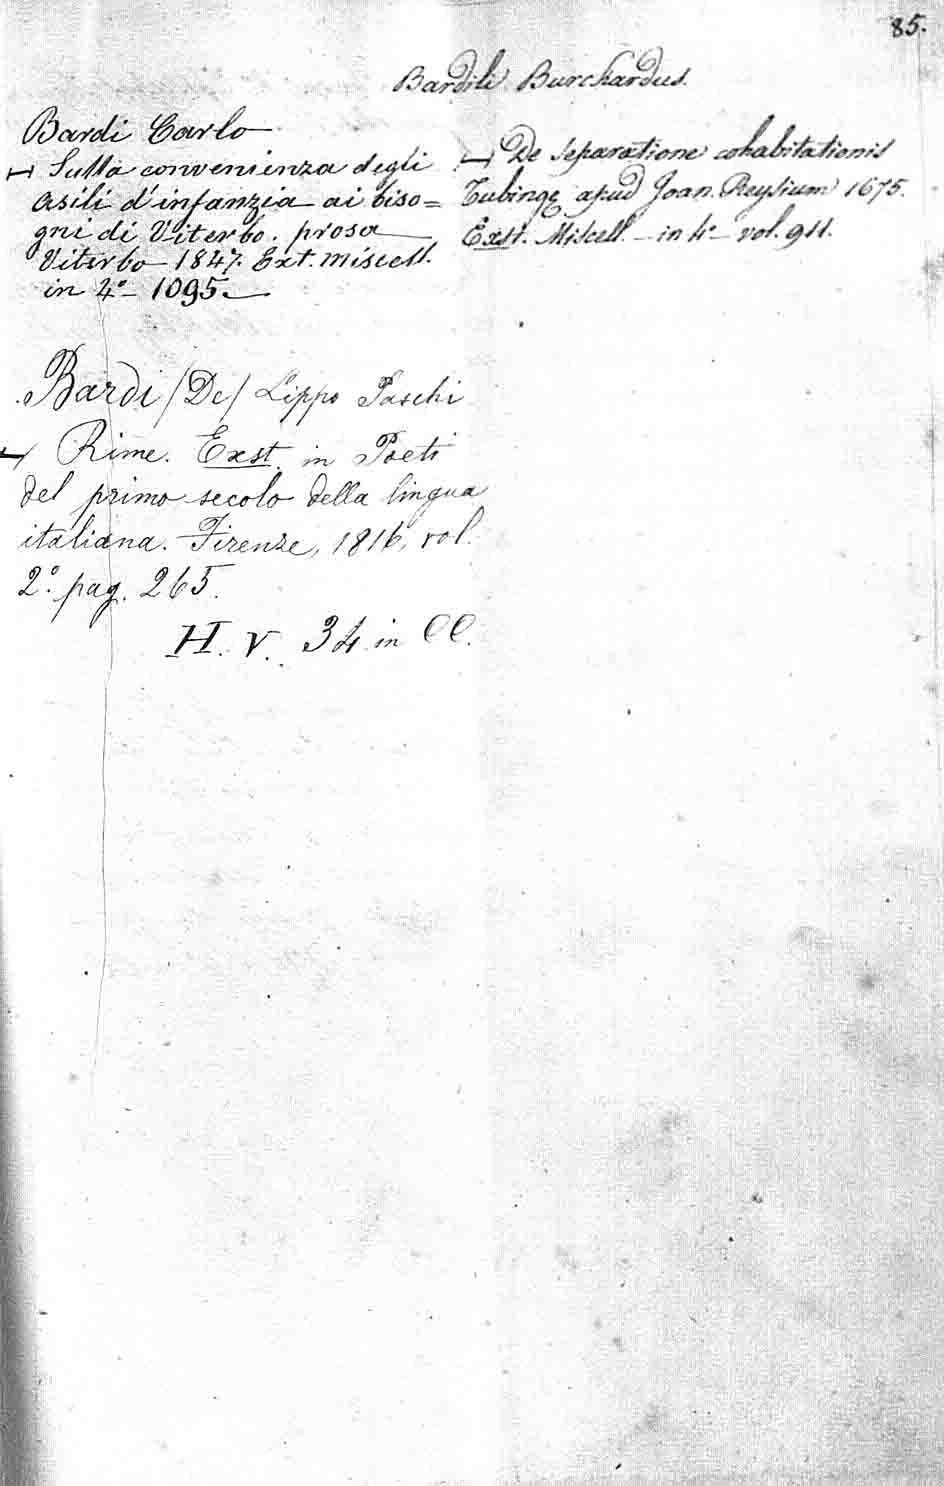 85.
Bardi Carlo
Sulla convenienza degli
asili d'infanzia ai biso=
gni di Viterbo. prosa
Viterbo 1847. Ext. miscell.
in 4° 1095.
Bardi (De) Lippo Paschi
Rime. Exst. in Poeti
del primo secolo della lingua
italiana. Firenze, 1816, vol.
2° pag. 265.
H. V. 34 in CC.
Bardili Burchardus.
De separatione cohabitationis
Tubingę apud Joan. Reysium 1675.
Exst. Miscell. in 4° vol. 911.